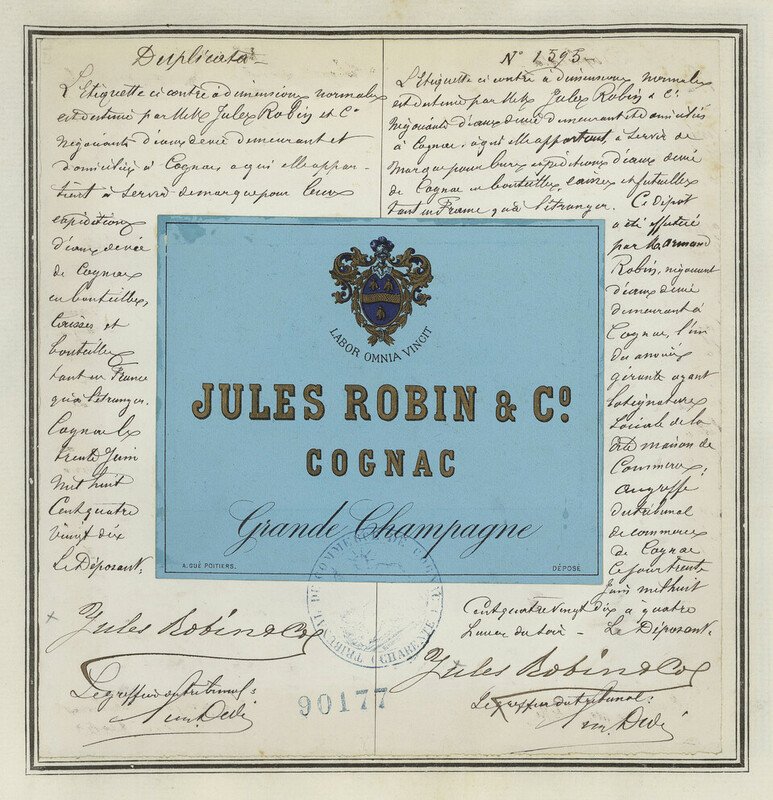 Duplicata
L'Etiquette ci contre à dimensions normales
est destinée par MM. Jules Robin et Co
Négociants d'eaux de vie demeurant et
domiciliés à Cognac, à qui elle appar-
tient à servir de marque pour leurs
expéditions
d'eaux de vie
de Cognac
en bouteilles,
caisses et
bouteilles
tant en France
qu'à l'étranger.
Cognac le
trente Juin
mil huit
Cent quatre
vingt dix
Le Déposant,
Jules Robin & Co
Le greffier du tribunal:
No 1595
L'Etiquette ci contre à dimensions normales
est destinée par MM. Jules Robin & Co.
Négociants d'eaux de vie demeurant et domiciliés
à Cognac, à qui elle appartient à servir de
marque pour leurs expéditions d'eaux de vie
de Cognac en bouteilles, caisses et futailles
tant en France qu'à l'étranger. Ce dépôt
a été effectué
par M. Armand
Robin, négociant
d'eaux de vie
demeurant à
Cognac, l'un
des associés
gérants ayant
la signature
sociale de la
dite maison de
Commerce,
au greffe
du tribunal
de commerce
de Cognac
ce jour trente
Juin mil huit
Cent quatre vingt dix à quatre
heures du soir - Le Déposant,
Jules Robin & Co
Le greffier du tribunal:
LABOR OMNIA VINCIT
JULES ROBIN & Co
COGNAC
Grande Champagne
A. GUÉ POITIERS.
DÉPOSÉ
TRIBUNAL DE COMMERCE DE COGNAC (CHARENTE)
90177